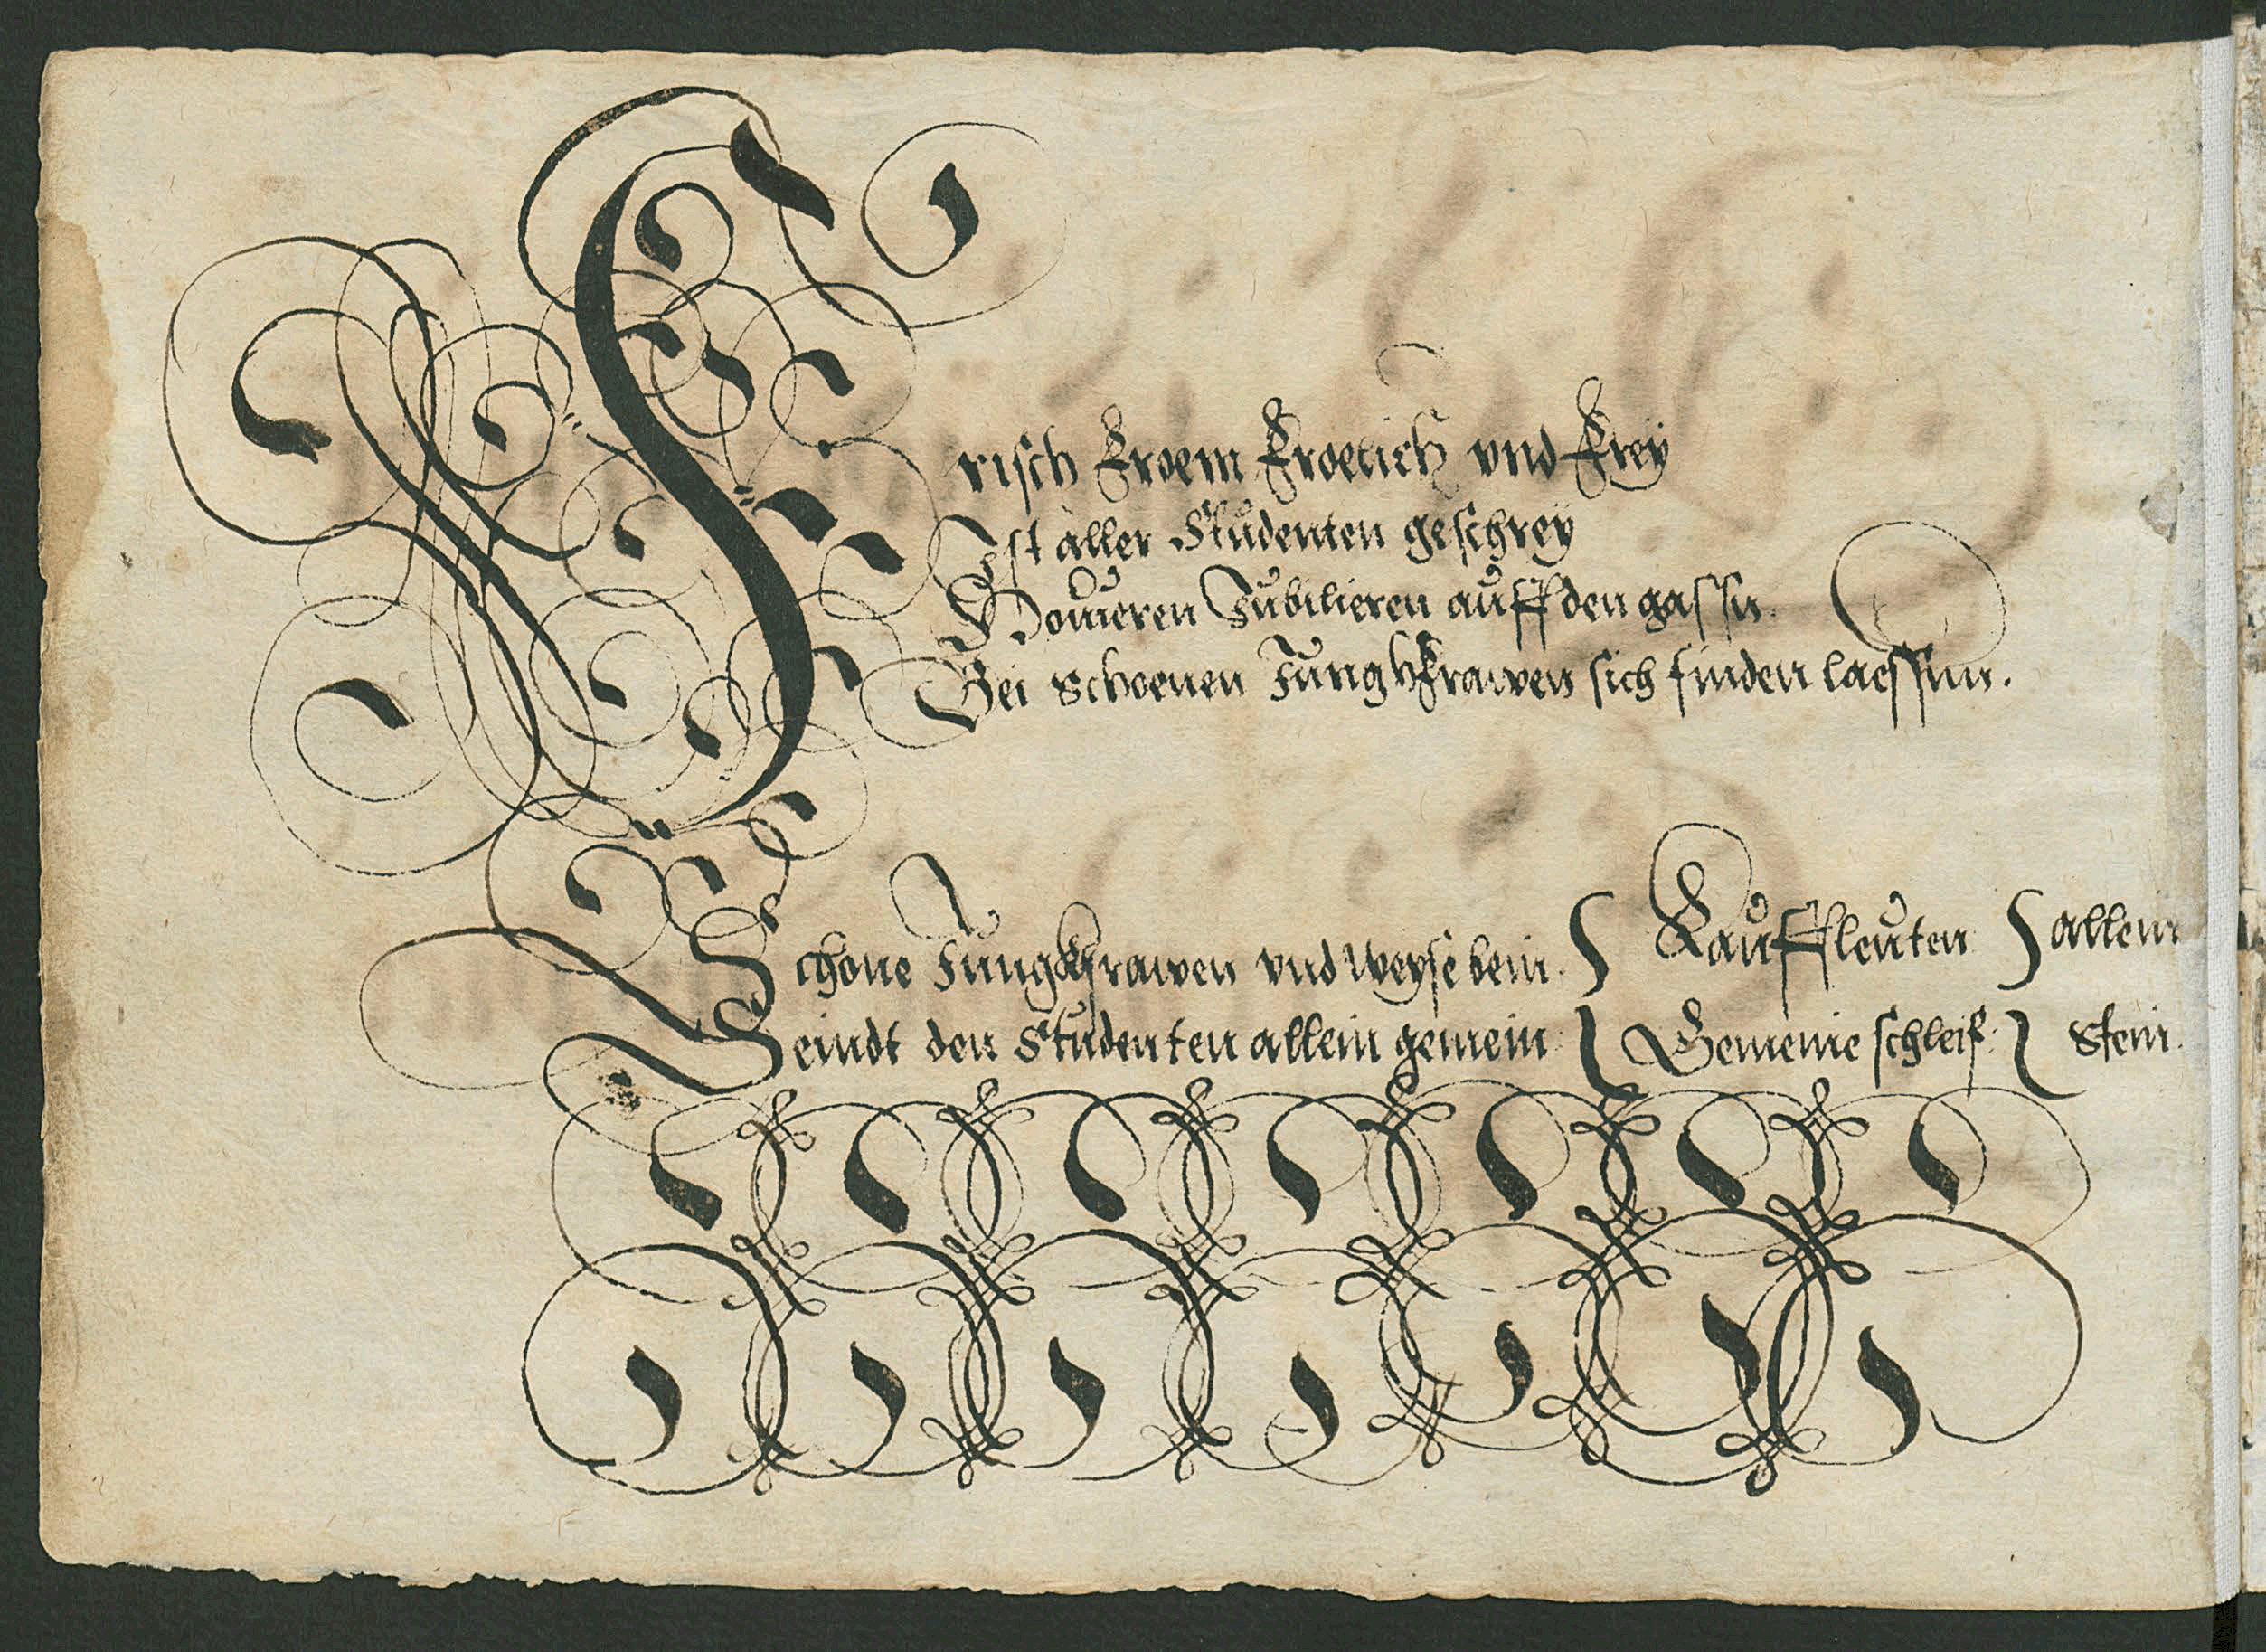 Frisch Froem Froelich vnd Frey
Ist aller Studenten geschrey
Houieren Jubilieren auff den gassn.
Bei schoenen Jungkfrawen sich finden laessnn.
Schone Jungkfrawen vnd weyse bein. Kauffleuten allein
Seindt den Studenten allein gemein Gemeine schleif. stein.